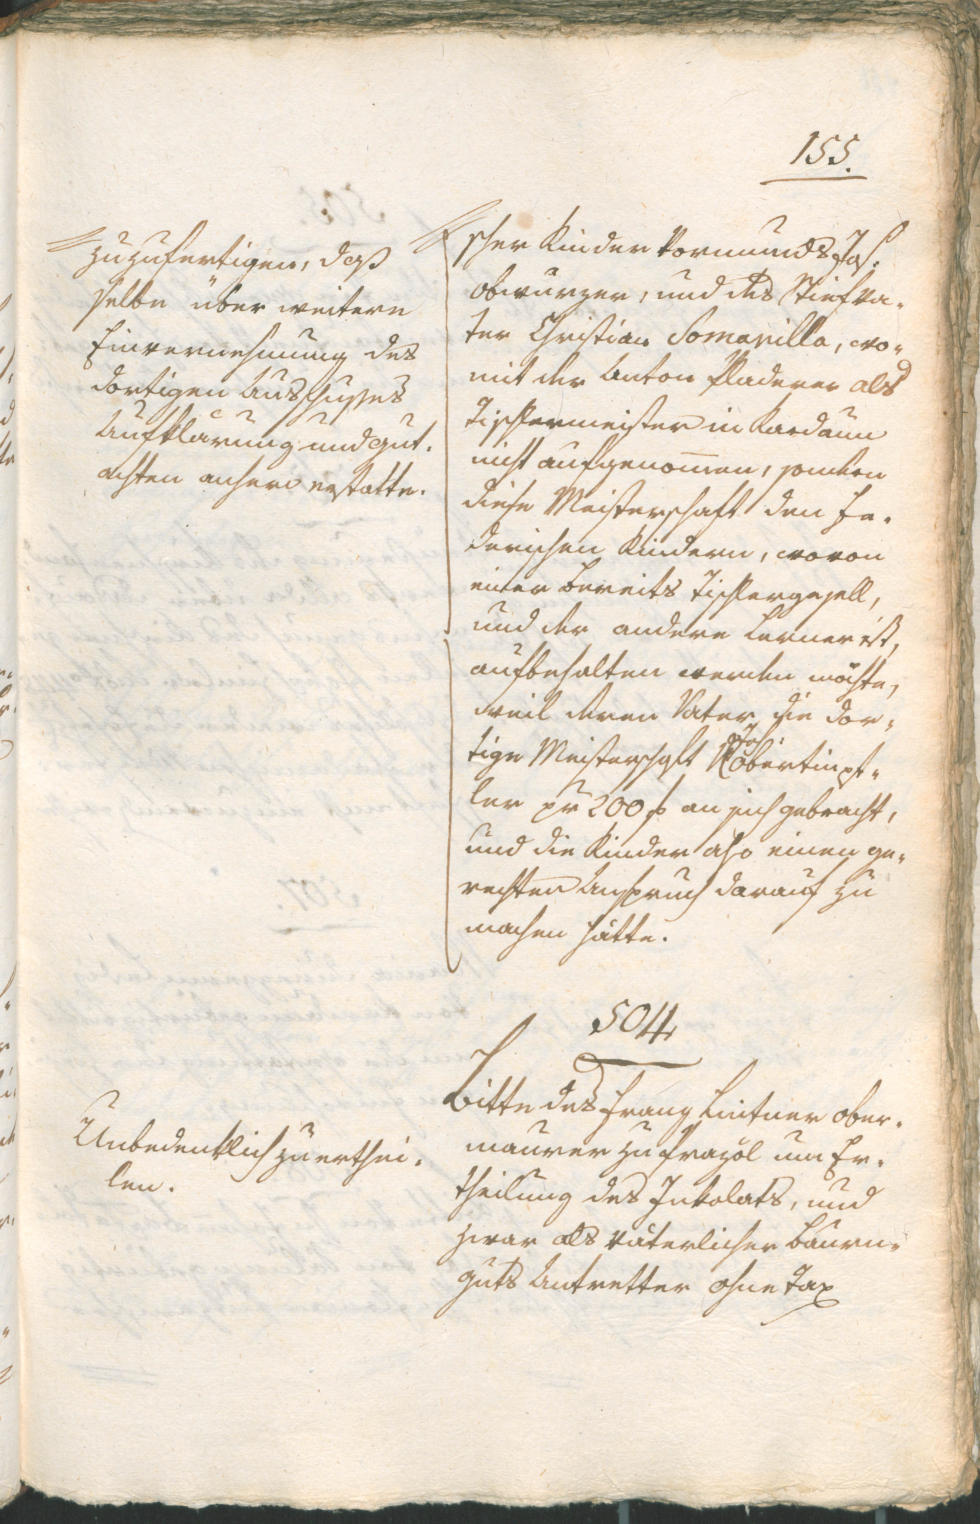 155.
zuzufertigen, daß
selbe über weitere
Einvernehmung des
dortigen Ausschußes
Aufklärung und Gut-
achten anhero erstatte.
scher Kinder Vormunds Jos.
Obwurzer, und des Stiefva-
ter Christian Somavilla, wo-
mit der Anton Pladerer als
Tischlermeister in Kardaun
nicht aufgenommen, sondern
diese Meisterschaft den
derischen Kindern, wovon
einer bereits Tischlergesell,
und der andere Lerner ist,
aufbehalten werden möchte,
weil deren Vater die dor-
tige Meisterschaft Joh.
ler pr 200 f an sich gebracht,
und die Kinder also einen ge-
rechten Anspruch darauf zu
machen hätte.
504
Unbedenklich zu erthei-
len.
Bitte des Franz Lintner Ober-
maurer zu um Er-
theilung des Inkolats, und
zwar als väterlicher Bauern-
guts Antretter ohne Tax